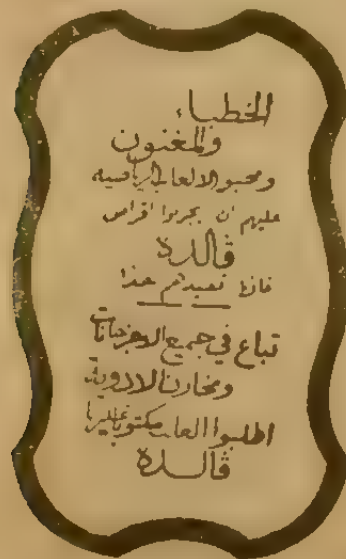 الخطباء
والمغنون
ومحبو الالعاب الرياضيه
عليهم ان يجربوا اقراص
ڤالدة
فانها تفيدهم جدا
تباع في جميع الاجزخانات
ومخازن الادوية
اطلبوا العلب مكتوبا عليها
ڤالدة